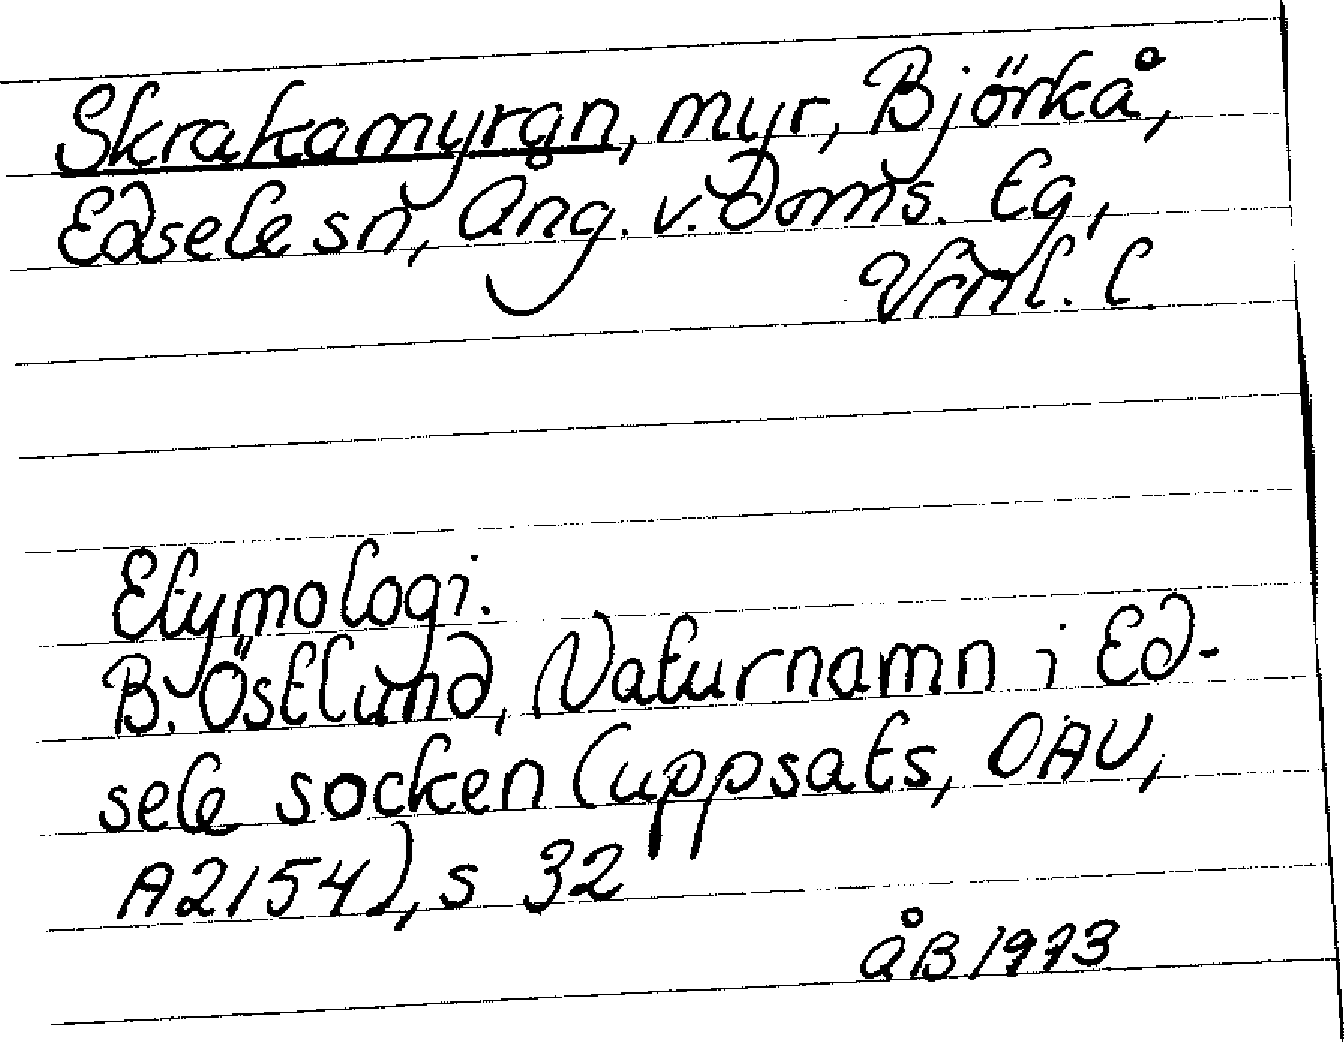 Skrakamyran, myr, Björkå,
Edsele sn, Ång. v. Doms. Eg,
Vrml. l.
Etymologi.
B. Östlund, Naturnamn i Ed-
sele socken (uppsats, DAU,
A2154), s 32
åB 1973